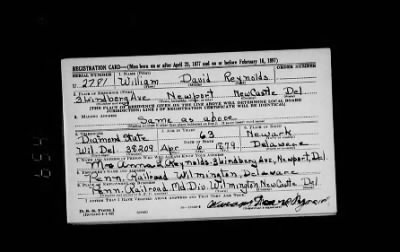 REGISTRATION CARD—(Men born on or after April 28, 1877 and on or before February 16, 1897)
SERIAL NUMBER 1. NAME (Print) ORDER NUMBER
U 2781 William David Reynolds
2. PLACE OF RESIDENCE (Print)
3 Lindberg Ave. Newport NewCastle Del.
(THE PLACE OF RESIDENCE GIVEN ON THE LINE ABOVE WILL DETERMINE LOCAL BOARD
JURISDICTION; LINE 2 OF REGISTRATION CERTIFICATE WILL BE IDENTICAL)
3. MAILING ADDRESS
Same as above
4. TELEPHONE 5. AGE IN YEARS 6. PLACE OF BIRTH
Diamond State 63 Newark
DATE OF BIRTH
Wil. Del 38209 Apr 6 1879 Delaware
7. NAME AND ADDRESS OF PERSON WHO WILL ALWAYS KNOW YOUR ADDRESS
Mrs Anna Reynolds-3 Lindberg Ave, Newport, Del.
8. EMPLOYER'S NAME AND ADDRESS
Penn. Railroad Wilmington, Delaware
9. PLACE OF EMPLOYMENT OR BUSINESS
Penn. Railroad Md Div. Wilmington NewCastle Del
I AFFIRM THAT I HAVE VERIFIED ABOVE ANSWERS AND THAT THEY ARE TRUE.
D. S. S. Form 1